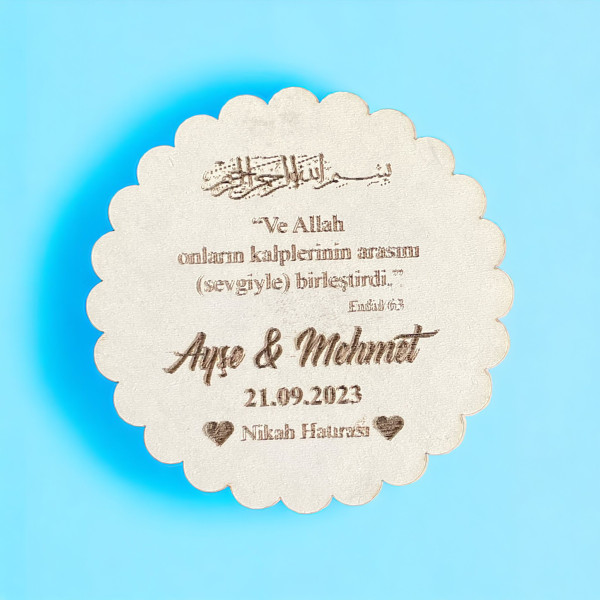 بسم الله الرحمن الرحيم
“Ve Allah
onların kalplerinin arasını
(sevgiyle) birleştirdi.”
Enfal 63
Ayşe & Mehmet
21.09.2023
Nikah Hatırası